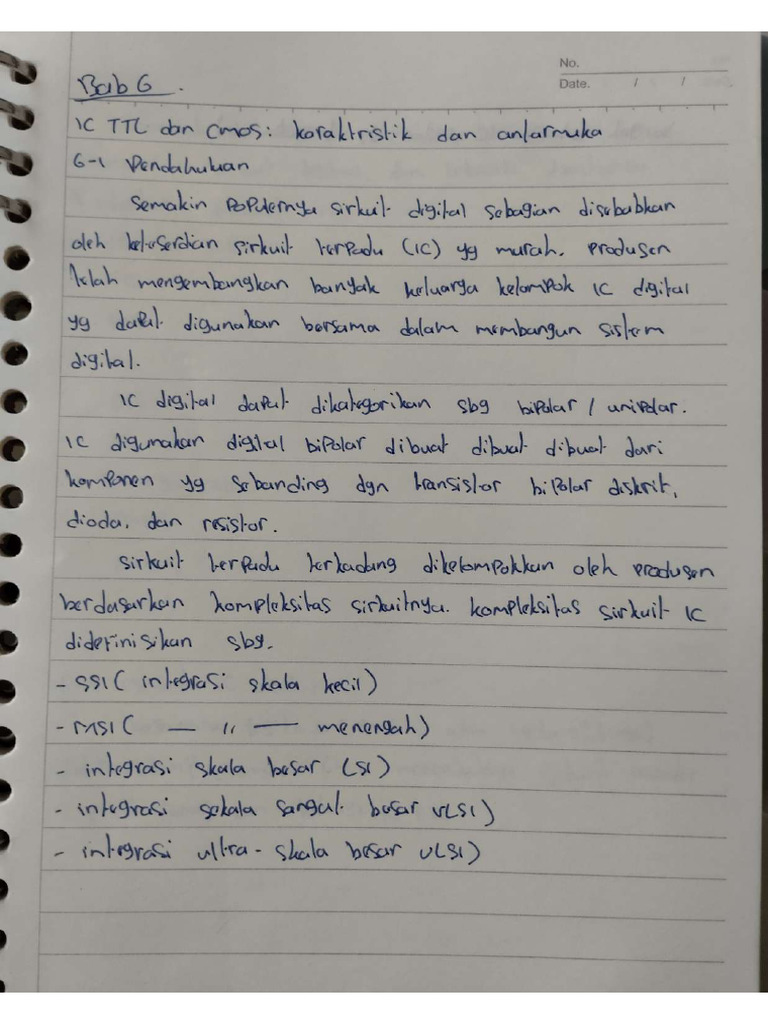 No.
Date. / /
Bab 6.
IC TTL dan CMOS: karaktristik dan antarmuka
6-1 Pendahuluan
Semakin populernya sirkuit digital sebagian disebabkan
oleh ketersediaan sirkuit terpadu (IC) yg murah. produsen
telah mengembangkan banyak keluarga kelompok IC digital
yg dapat digunakan bersama dalam membangun sistem
digital.
IC digital dapat dikategorikan sbg bipolar / unipolar.
IC digunakan digital bipolar dibuat dibuat dibuat dari
komponen yg sebanding dgn transistor bipolar diskrit,
dioda, dan resistor.
sirkuit terpadu terkadang dikelompokkan oleh produsen
berdasarkan kompleksitas sirkuitnya. kompleksitas sirkuit IC
didefinisikan sbg.
- SSI ( integrasi skala kecil)
- MSI ( — 11 — menengah)
- integrasi skala besar (LSI)
- integrasi sekala sangat besar VLSI)
- integrasi ultra - skala besar ULSI)